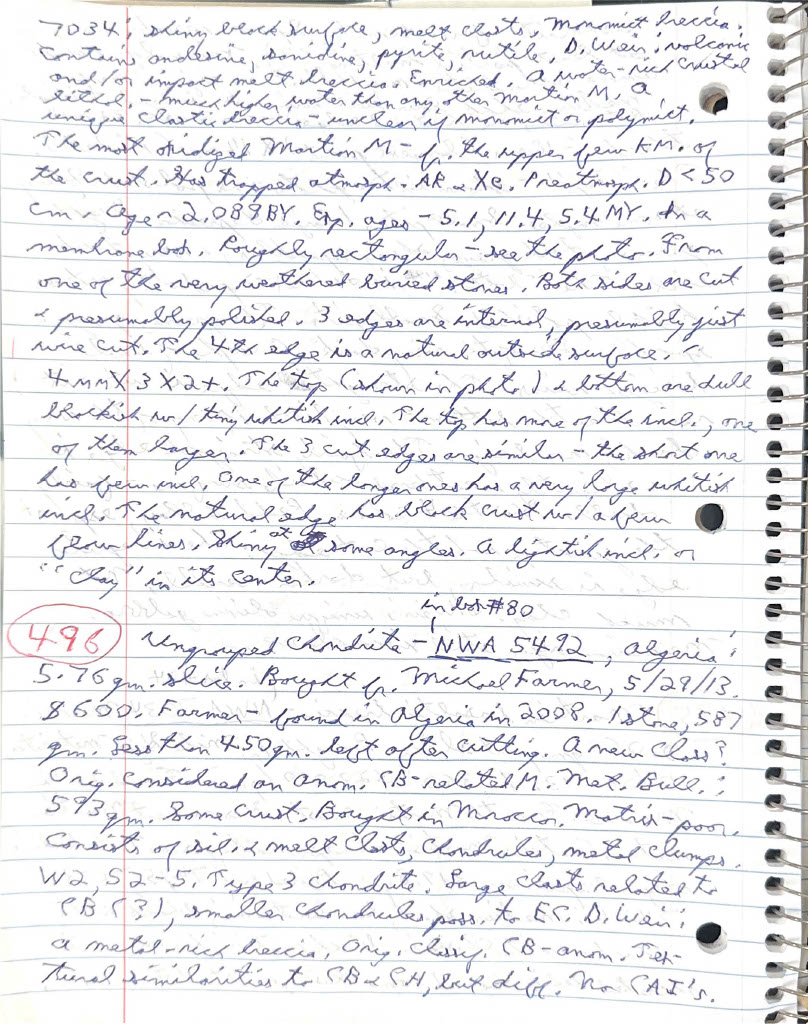 7034; shiny black surface, melt clasts, monomict breccia.
Contains andesine, sanidine, pyrite, rutile. D. Weir; volcanic
and/or impact melt breccia. Enriched. A water-rich crustal
lithol. - much higher water than any other Martian M. A
unique clastic breccia - unclear if monomict or polymict.
The most oxidized Martian M - fr. the upper few KM. of
the crust. Has trapped atmosph. AR & Xe. Preatmosph. D < 50
cm. Age ~ 2.089 BY. Exp. ages - 5.1, 11.4, 5.4 MY. In a
membrane box. Roughly rectangular - see the photo. From
one of the very weathered buried stones. Both sides are cut
& presumably polished. 3 edges are internal, presumably just
wire cut. The 4th edge is a natural outside surface. ~
4 mm X 3 X 2+. The top (shown in photo) & bottom are dull
blackish w/ tiny whitish incl. The top has more of the incl., one
of them larger. The 3 cut edges are similar - the short one
has few incl. One of the longer ones has a very large whitish
incl. The natural edge has black crust w/ a few
flow lines. Shiny at some angles. A lightish incl. or
"clay" in its center.
in box #80
496 Ungrouped Chondrite - NWA 5492, Algeria;
5.76 gm. slice. Bought fr. Michael Farmer, 5/29/13.
$600. Farmer - found in Algeria in 2008. 1 stone, 587
gm. Less than 450 gm. left after cutting. A new class?
Orig. considered an anom. CB-related M. Met. Bull.;
593 gm. Some crust. Bought in Morocco. Matrix-poor.
Consists of sil. & melt clasts, chondrules, metal clumps.
W2, S2-5. Type 3 chondrite. Large clasts related to
CB (?), smaller chondrules poss. to EC. D. Weir;
a metal-rich breccia, orig. classif. CB-anom. Tex-
tural similarities to CB & CH, but diff. No CAI's.